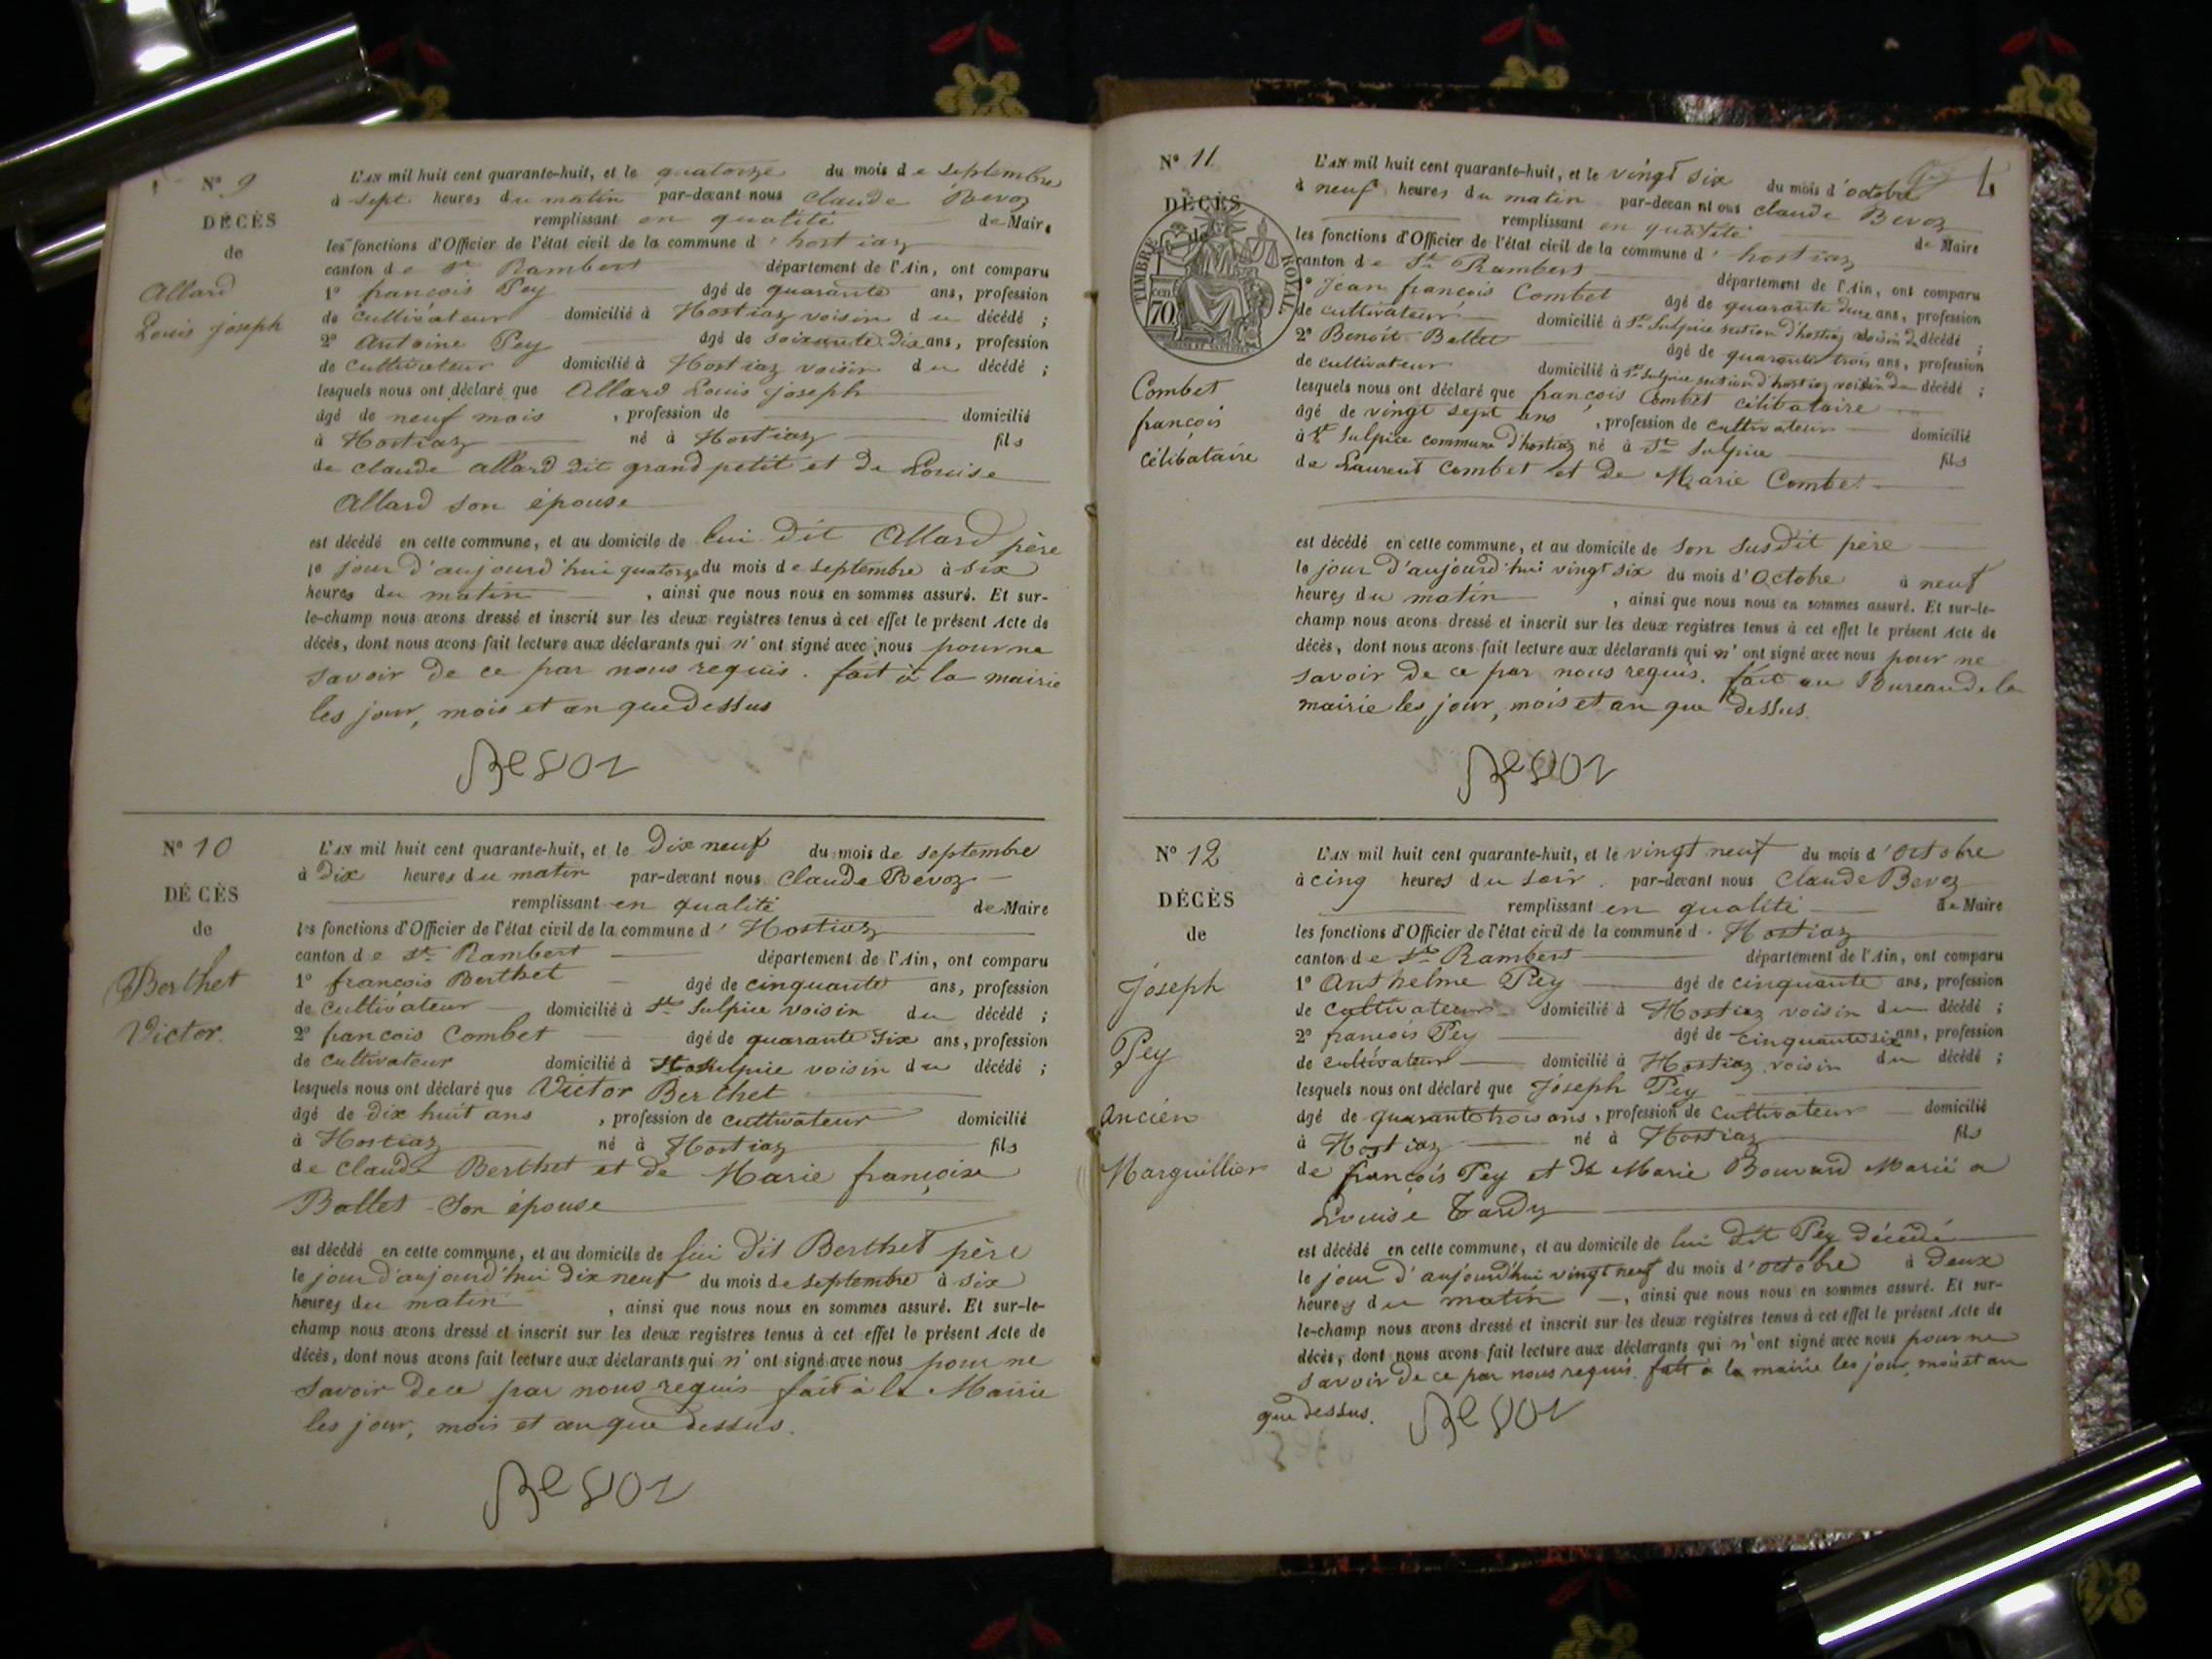 N° 9
DÉCÈS
de
Allard
Louis joseph
L'AN mil huit cent quarante-huit, et le quatorze du mois de septembre
à sept heures du matin par-devant nous Claude Bevoz
remplissant en qualité de Maire
les fonctions d'Officier de l'état civil de la commune d'hostiaz
canton de St Rambert département de l'Ain, ont comparu
1° françois Pey âgé de quarante ans, profession
de cultivateur domicilié à Hostiaz voisin du décédé ;
2° Antoine Pey âgé de soixante dix ans, profession
de cultivateur domicilié à Hostiaz voisin du décédé ;
lesquels nous ont déclaré que Allard Louis joseph
âgé de neuf mois , profession de domicilié
à Hostiaz né à Hostiaz fils
de claude allard dit grand petit et de Louise
Allard son épouse
est décédé en cette commune, et au domicile de lui dit Allard père
le jour d'aujourd'hui quatorze du mois de septembre à six
heures du matin , ainsi que nous nous en sommes assuré. Et sur-
le-champ nous avons dressé et inscrit sur les deux registres tenus à cet effet le présent Acte de
décès, dont nous avons fait lecture aux déclarants qui n'ont signé avec nous pour ne
savoir de ce par nous requis. fait à la mairie
les jour, mois et an que dessus
Bevoz
N° 10
DÉCÈS
de
Berthet
Victor.
L'AN mil huit cent quarante-huit, et le Dix neuf du mois de septembre
à Dix heures du matin par-devant nous Claude Bevoz
remplissant en qualité de Maire
les fonctions d'Officier de l'état civil de la commune d'Hostiaz
canton de St Rambert département de l'Ain, ont comparu
1° françois Berthet âgé de cinquante ans, profession
de cultivateur domicilié à St Sulpice voisin du décédé ;
2° françois Combet âgé de quarante six ans, profession
de cultivateur domicilié à St Sulpice voisin du décédé ;
lesquels nous ont déclaré que Victor Berthet
âgé de dix huit ans , profession de cultivateur domicilié
à Hostiaz né à Hostiaz fils
de claude Berthet et de Marie françoise
Ballet son épouse
est décédé en cette commune, et au domicile de lui dit Berthet père
le jour d'aujourd'hui dix neuf du mois de septembre à six
heures du matin , ainsi que nous nous en sommes assuré. Et sur-le-
champ nous avons dressé et inscrit sur les deux registres tenus à cet effet le présent Acte de
décès, dont nous avons fait lecture aux déclarants qui n'ont signé avec nous pour ne
savoir de ce par nous requis fait à la Mairie
les jour, mois et an que dessus.
Bevoz
4
N° 11
DÉCÈS
de
TIMBRE ROYAL
70
Combet
françois
célibataire
L'AN mil huit cent quarante-huit, et le vingt six du mois d'octobre
à neuf heures du matin par-devan nt ous claude Bevoz
remplissant en qualité de Maire
les fonctions d'Officier de l'état civil de la commune d'hostiaz
canton de St Rambert département de l'Ain, ont comparu
1° Jean françois Combet âgé de quarante deux ans, profession
de cultivateur domicilié à St Sulpice section d'hostiaz voisin du décédé ;
2° Benoît Ballet âgé de quarante trois ans, profession
de cultivateur domicilié à St Sulpice section d'hostiaz voisin du décédé ;
lesquels nous ont déclaré que françois Combet célibataire
âgé de vingt sept ans , profession de cultivateur domicilié
à St Sulpice commune d'hostiaz né à St Sulpice fils
de Laurent Combet et de Marie Combet
est décédé en cette commune, et au domicile de son susdit père
le jour d'aujourd'hui vingt six du mois d'Octobre à neuf
heures du matin , ainsi que nous nous en sommes assuré. Et sur-le-
champ nous avons dressé et inscrit sur les deux registres tenus à cet effet le présent Acte de
décès, dont nous avons fait lecture aux déclarants qui n'ont signé avec nous pour ne
savoir de ce par nous requis. fait au Bureau de la
mairie les jour, mois et an que dessus.
Bevoz
N° 12
DÉCÈS
de
Joseph
Pey
ancien
Marguillier
L'AN mil huit cent quarante-huit, et le vingt neuf du mois d'Octobre
à cinq heures du soir. par-devant nous Claude Bevoz
remplissant en qualité de Maire
les fonctions d'Officier de l'état civil de la commune d'Hostiaz
canton de St Rambert département de l'Ain, ont comparu
1° Anthelme Pey âgé de cinquante ans, profession
de cultivateur domicilié à Hostiaz voisin du décédé ;
2° françois Pey âgé de cinquante six ans, profession
de cultivateur domicilié à Hostiaz voisin du décédé ;
lesquels nous ont déclaré que Joseph Pey
âgé de quarante trois ans, profession de cultivateur domicilié
à Hostiaz né à Hostiaz fils
de françois Pey et de Marie Bouvard Marié a
Louise Tardy
est décédé en cette commune, et au domicile de lui dit Pey décédé
le jour d'aujourd'hui vingt neuf du mois d'octobre à Deux
heures du matin , ainsi que nous nous en sommes assuré. Et sur-
le-champ nous avons dressé et inscrit sur les deux registres tenus à cet effet le présent Acte de
décès, dont nous avons fait lecture aux déclarants qui n'ont signé avec nous pour ne
savoir de ce par nous requis. fait à la mairie les jour, mois et an
que dessus.
Bevoz